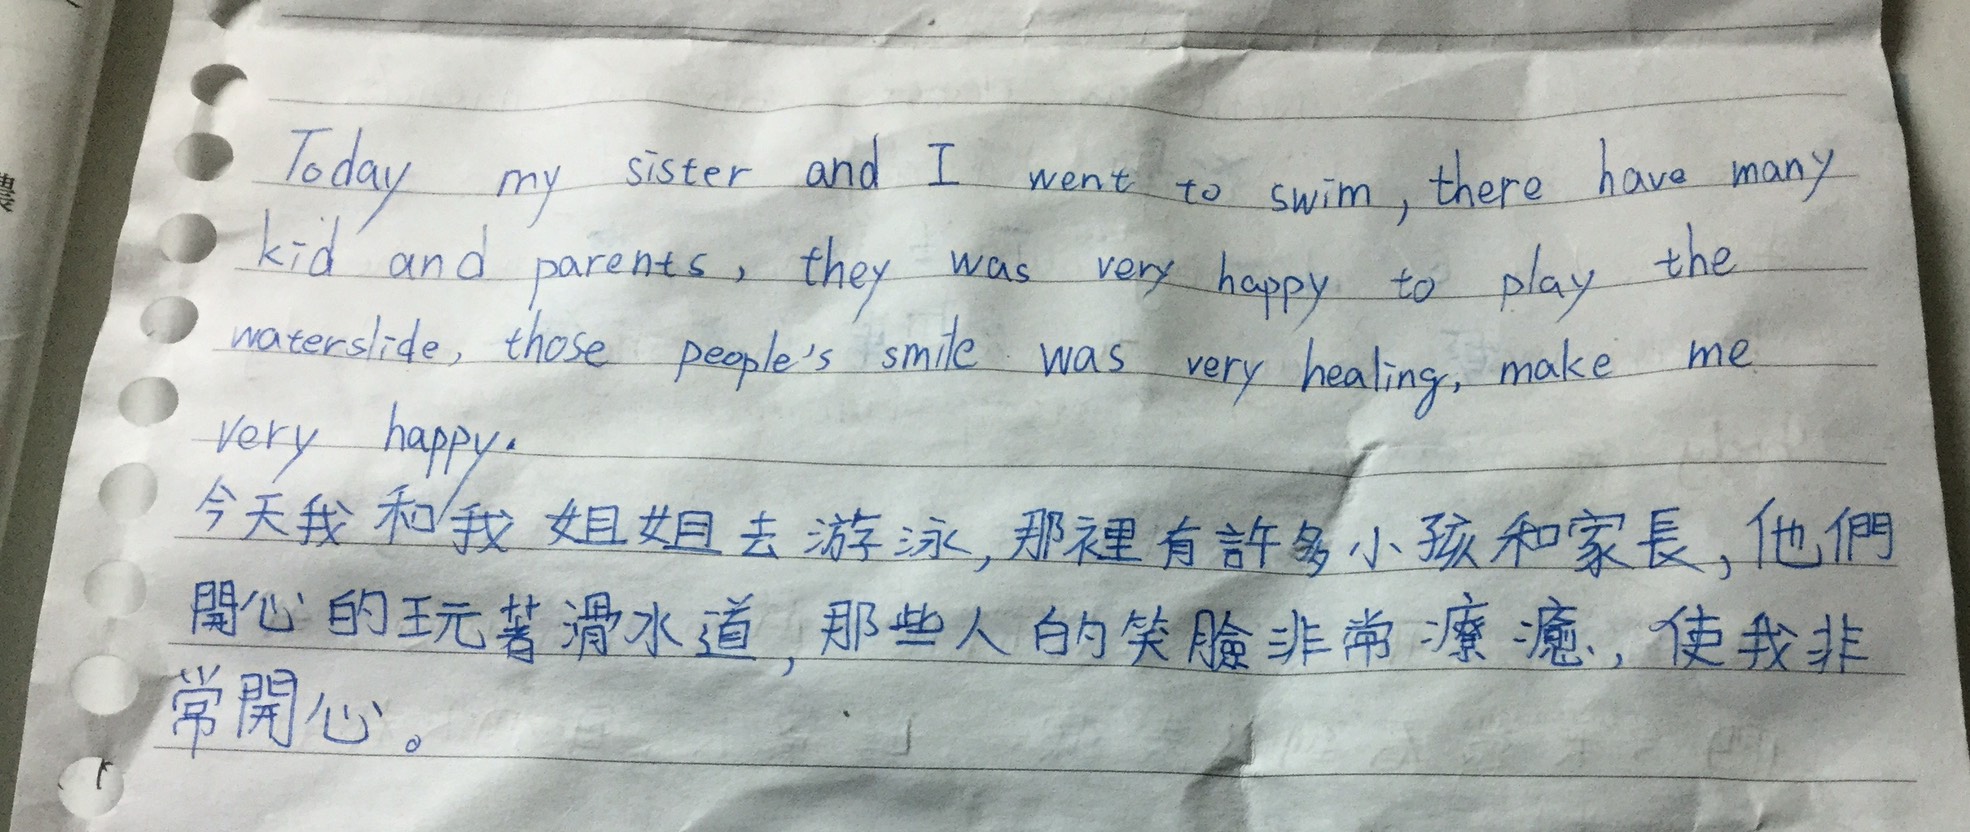 Today my sister and I went to swim, there have many
kid and parents, they was very happy to play the
waterslide, those people's smile was very healing, make me
very happy.
今天我和我姐姐去游泳,那裡有許多小孩和家長,他們
開心的玩著滑水道,那些人的笑臉非常療癒,使我非
常開心。
農